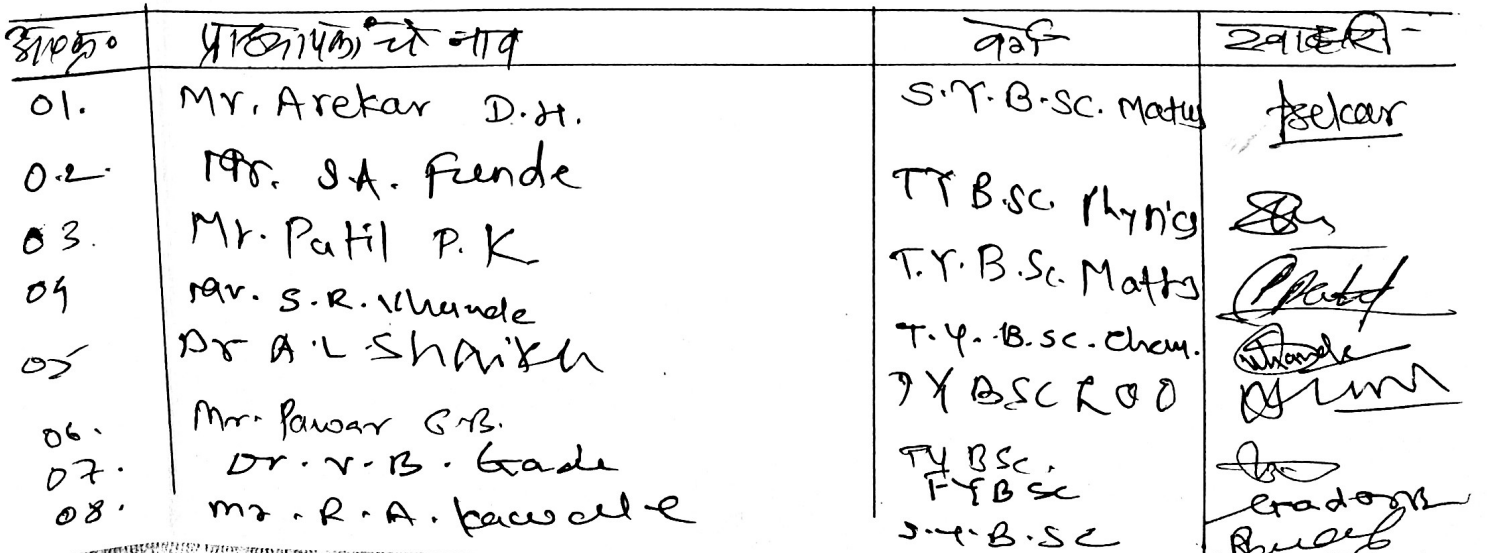 अ.क्र. प्राध्यापकांचे नाव वर्ग स्वाक्षरी
01. Mr. Arekar D.H. S.Y.B.SC. Maths
02. Mr. S.A. Funde TYB.SC. Physics
03. Mr. Patil P.K T.Y.B.Sc. Maths
04 Mr. S.R. Khande T.Y.B.SC. Chem.
05 Dr A.L Shaikh TYBSC ZOO
06. Mr. Pawar G.B. TYBSc.
07. Dr. V.B. Gade FYBSc
08. Mr. R.A. Kawale S.Y.B.SC